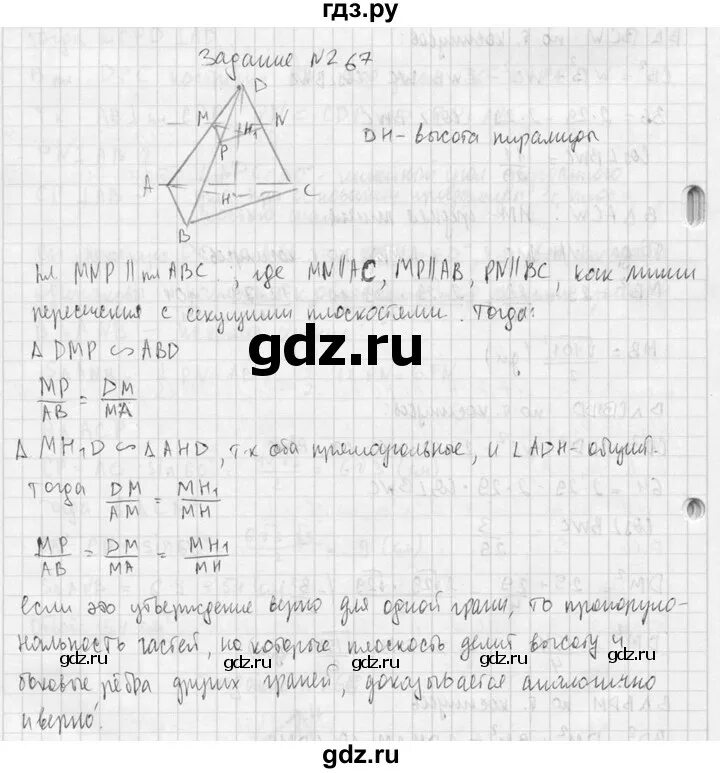 гдз.ру
Задание №267
D
M
H₁
N
P
A
H
C
B
DH - высота пирамиды
пл MNP || пл ABC, где MN||AC, MP||AB, PN||BC, как линии
пересечения с секущими плоскостями. Тогда:
Δ DMP ∽ ABD
MP/AB = DM/MA
gdz.ru
Δ MH₁D ∽ Δ AHD, т.к оба прямоугольные, и ∠ADH - общий.
Тогда DM/AM = MH₁/MH
MP/AB = DM/MA = MH₁/MH
если это утверждение верно для одной грани, то пропорцио-
нальность частей, на которые плоскость делит высоту и
gdz.ru gdz.ru
боковые рёбра других граней, доказывается аналогично
и верно.
gdz.ru gdz.ru
gdz.ru